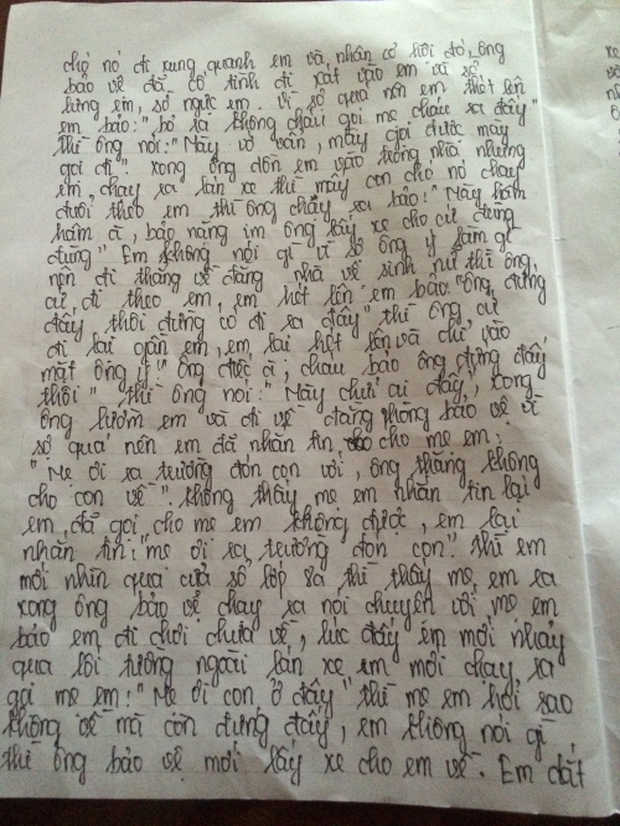 chó nó đi xung quanh em và nhân cơ hội đó, ông
bảo vệ đã cố tình đi xát vào em và sờ
lưng em, sờ ngực em. Vì sợ quá nên em thét lên
em bảo: "bỏ ra không cháu gọi mẹ cháu ra đấy"
thì ông nói: "Mày vớ vẩn, mày gọi được mày
gọi đi". xong ông dồn em vào trong nhà nhưng
em chạy ra lán xe thì mấy con chó nó chạy
đuổi theo em thì ông chạy ra bảo: "Mày hâm
hâm à, bảo nằng im ông lấy xe cho cứ đừng
đừng" Em không nói gì vì sợ ông ý làm gì
nên đi thẳng về đằng nhà vệ sinh nữ thì ông
cứ đi theo em, em hét lên em bảo: "ông đứng
đấy thôi đừng có đi ra đây" thì ông cứ
đi lại gần em, em lại hét lên và chỉ vào
mặt ông ý: "ông điếc à, cháu bảo ông đứng đấy
thôi" thì ông nói: "Mày chửi ai đấy", xong
ông lườm em và đi về đằng phòng bảo vệ vì
sợ quá nên em đã nhắn tin cho mẹ em:
"Mẹ ơi ra trường đón con với, ông thắng không
cho con về". không thấy mẹ em nhắn tin lại
em đã gọi cho mẹ em không được, em lại
nhắn tin: "mẹ ơi ra trường đón con". thì em
mới nhìn qua cửa sổ lớp 8a thì thấy mẹ em ra
xong ông bảo vệ chạy ra nói chuyện với mẹ em
bảo em đi chơi chưa về, lúc đấy em mới nhảy
qua lối tường ngoài lán xe em mới chạy ra
gọi mẹ em: "Mẹ ơi con ở đây" thì mẹ em hỏi sao
không về mà còn đứng đấy, em không nói gì
thì ông bảo vệ mới lấy xe cho em về. Em dắt